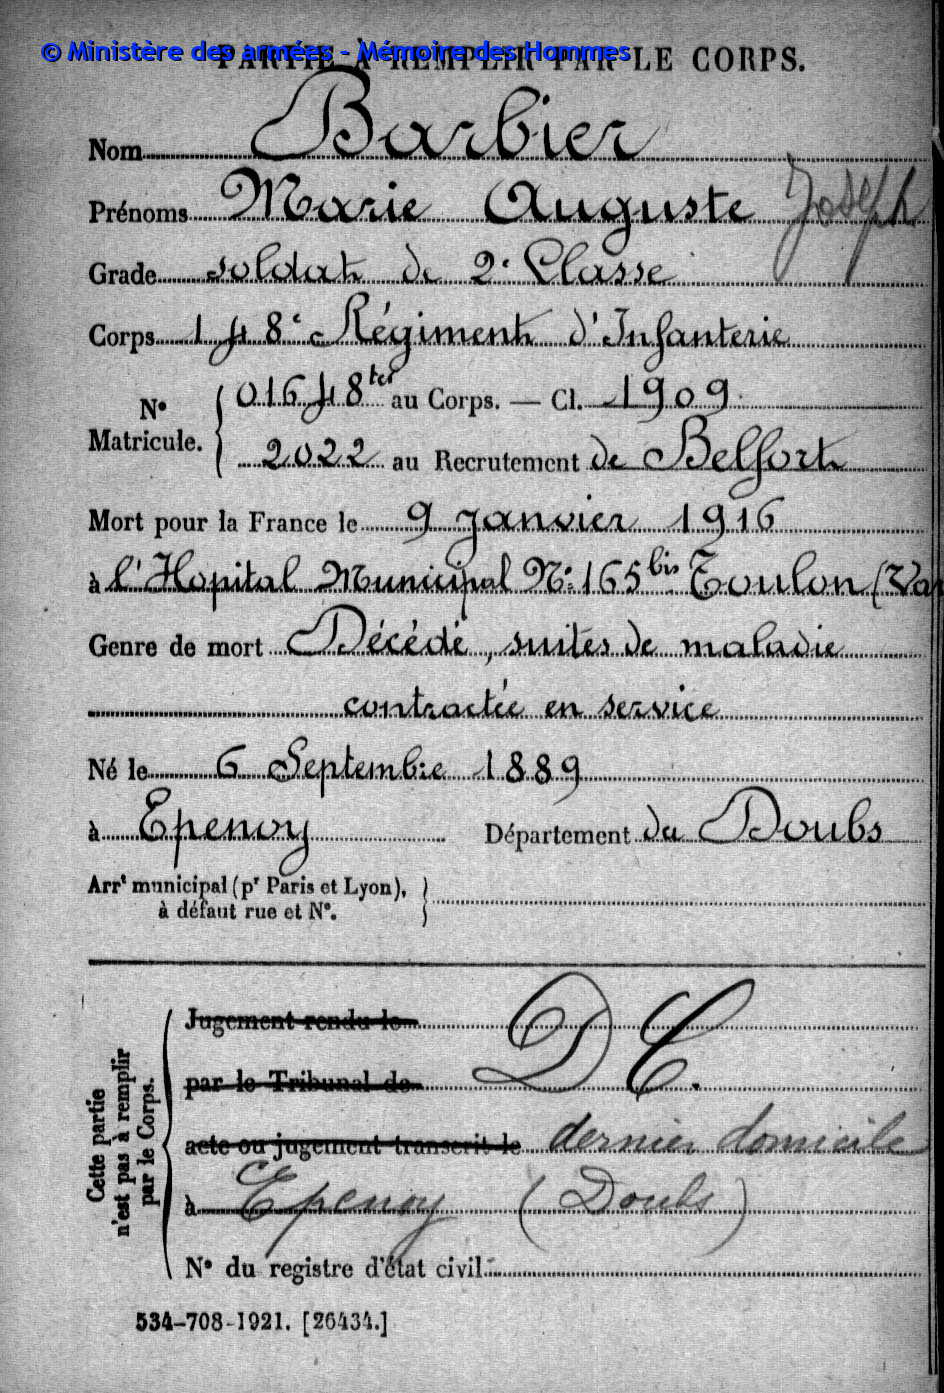 © Ministère des armées - Mémoire des Hommes
PARTIE À REMPLIR PAR LE CORPS.
Nom Barbier
Prénoms Marie Auguste Joseph
Grade soldat de 2e Classe
Corps 148e Régiment d'Infanterie
N° Matricule. 01648 ter au Corps. — Cl. 1909
2022 au Recrutement de Belfort
Mort pour la France le 9 janvier 1916
à l'Hopital Municipal N° 165 bis Toulon (Var
Genre de mort Décédé, suites de maladie
contractée en service
Né le 6 Septembre 1889
à Epenoy Département du Doubs
Arrt municipal (pr Paris et Lyon), à défaut rue et N°.
Cette partie n'est pas à remplir par le Corps.
Jugement rendu le D C.
par le Tribunal de
acte ou jugement transcrit le dernier domicile
à Epenoy (Doubs)
N° du registre d'état civil
534-708-1921. [26434.]